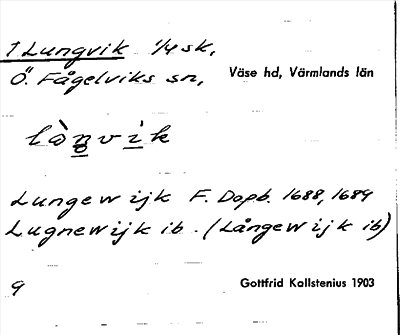 1 Lungvik 1/4 sk,
Ö. Fågelviks sn, Väse hd, Värmlands län
Lungewijk F. Dopb. 1688, 1689
Lugnewijk ib. (Långewijk ib)
9 Gottfrid Kallstenius 1903